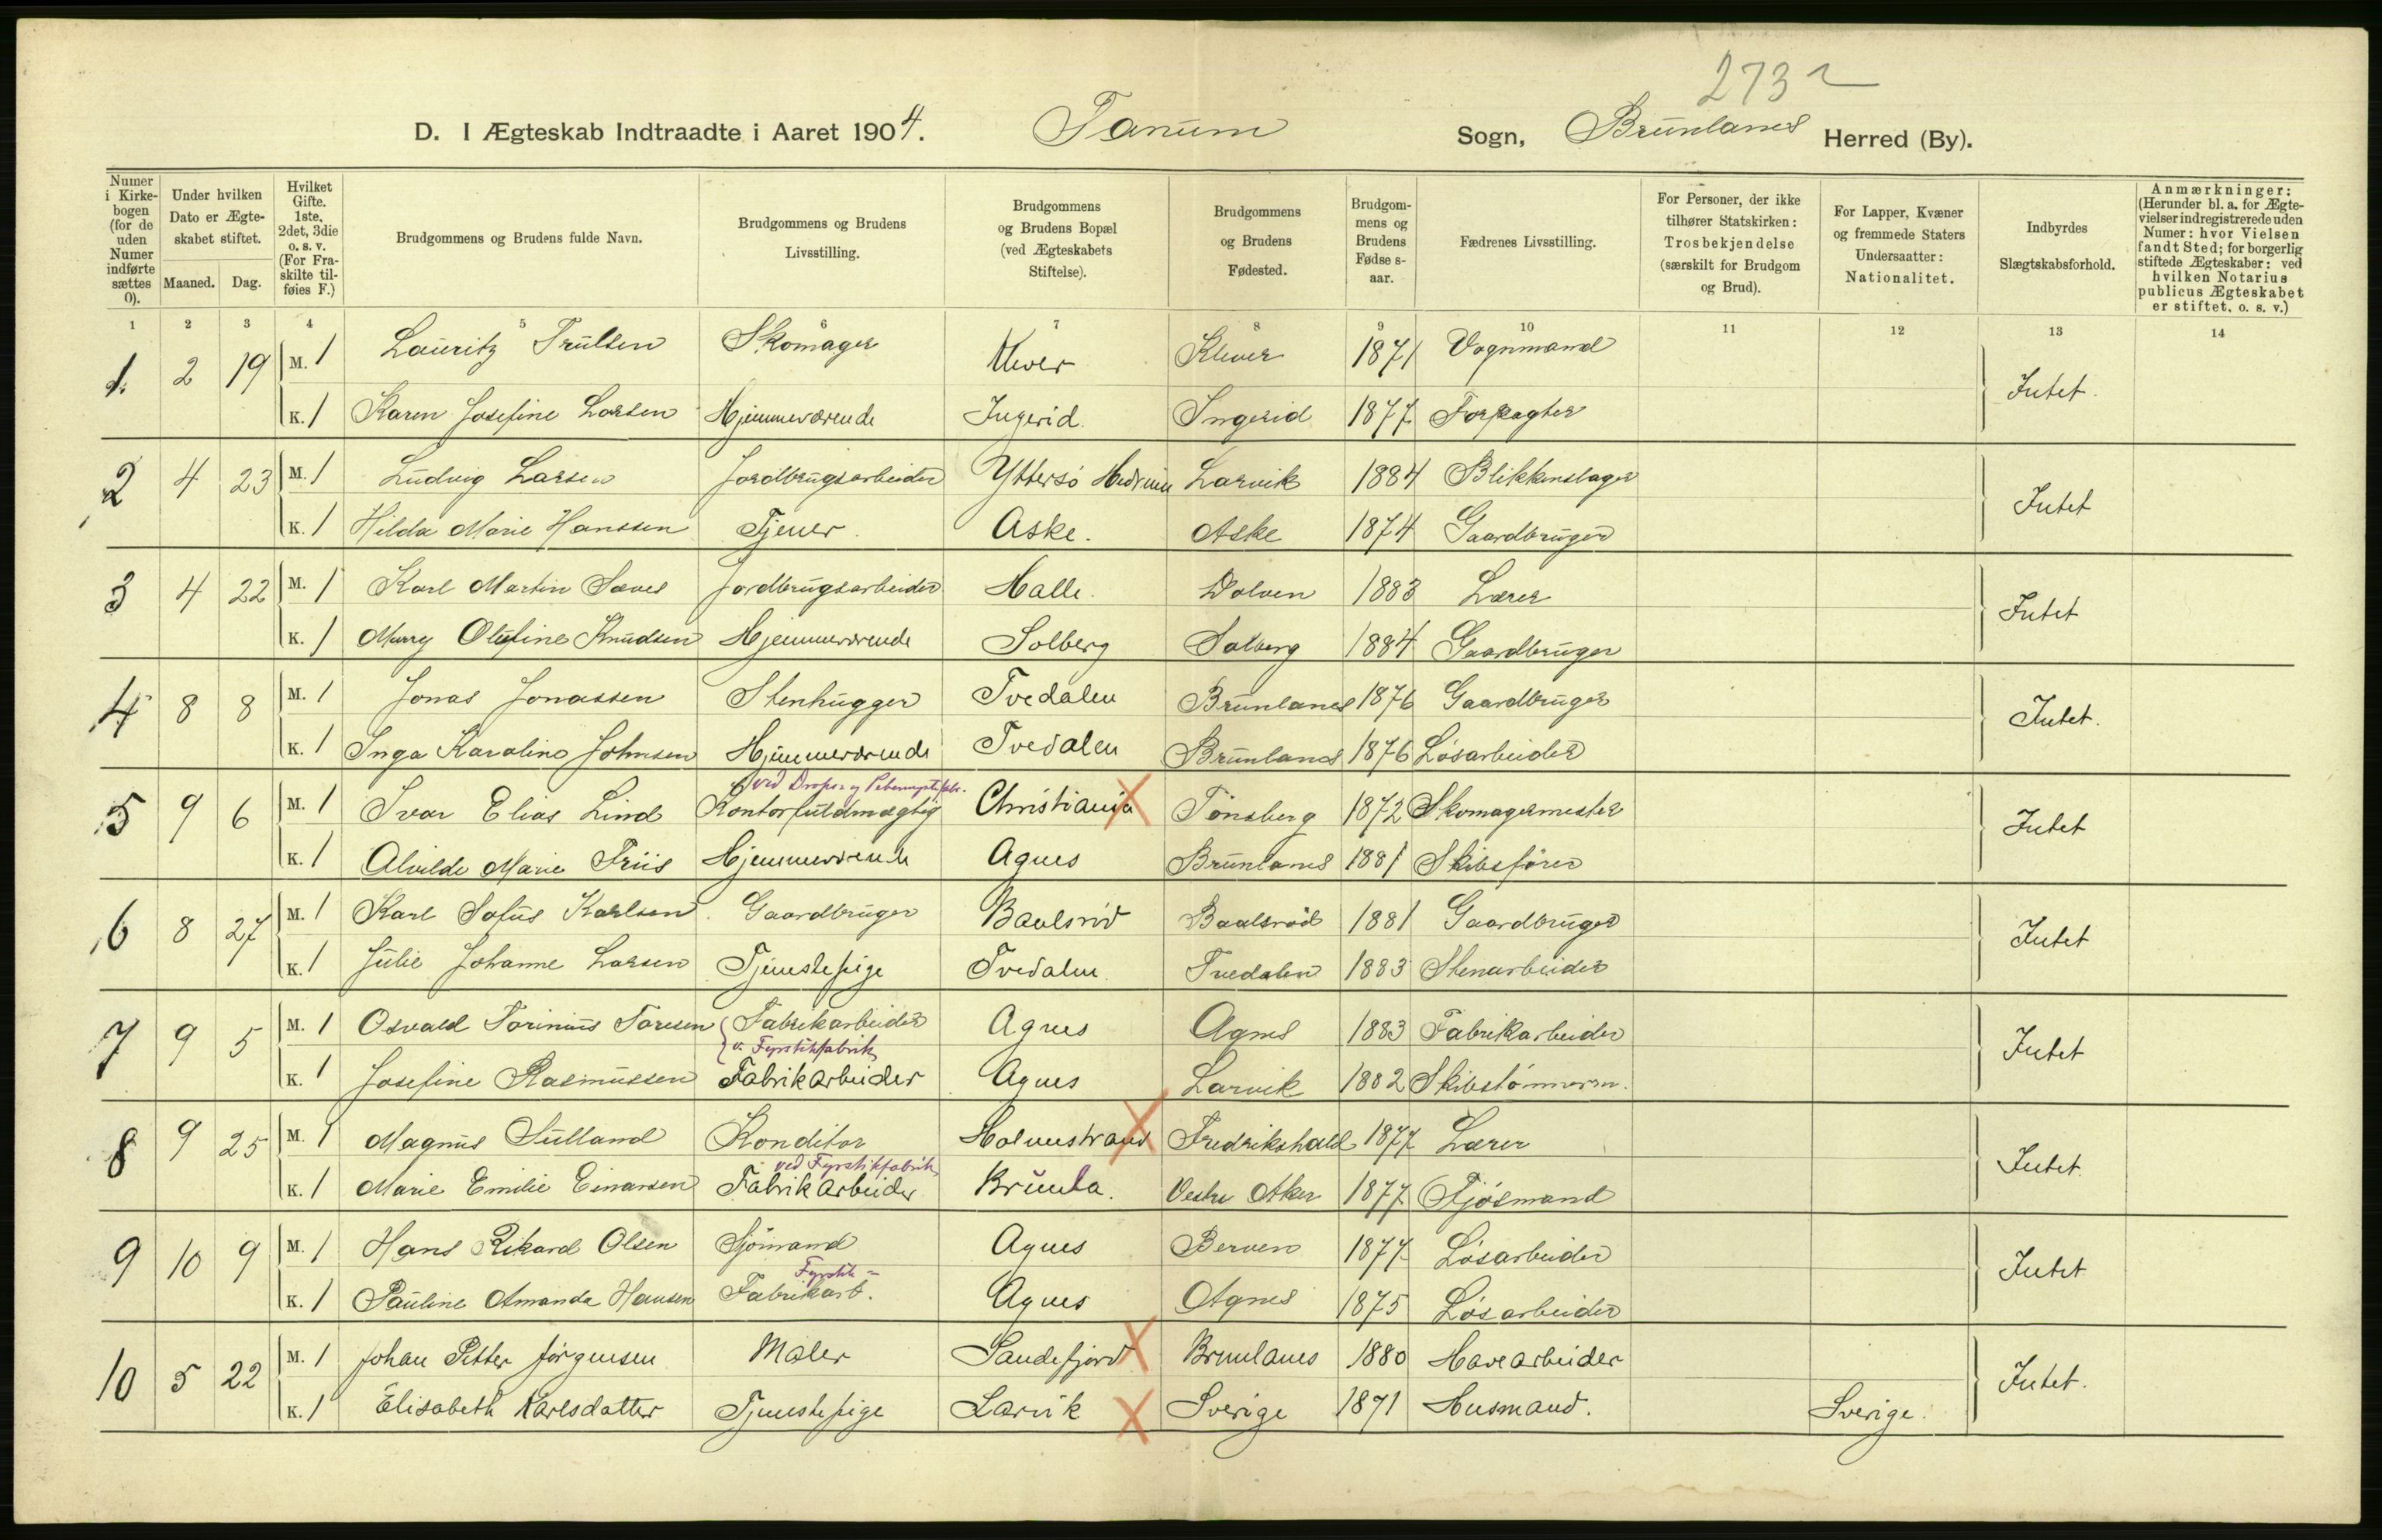 273 2
D. I Ægteskab Indtraadte i Aaret 1904. Tanum Sogn, Brunlanes Herred (By).
Numer i Kirkebogen (for de uden Numer indførte sættes 0).
Under hvilken Dato er Ægteskabet stiftet.
Maaned. Dag.
Hvilket Gifte. 1ste, 2det, 3die o. s. v. (For Fraskilte tilføies F.)
Brudgommens og Brudens fulde Navn.
Brudgommens og Brudens Livsstilling.
Brudgommens og Brudens Bopæl (ved Ægteskabets Stiftelse).
Brudgommens og Brudens Fødested.
Brudgommens og Brudens Fødselsaar.
Fædrenes Livsstilling.
For Personer, der ikke tilhører Statskirken: Trosbekjendelse (særskilt for Brudgom og Brud).
For Lapper, Kvæner og fremmede Staters Undersaatter: Nationalitet.
Indbyrdes Slægtskabsforhold.
Anmærkninger: (Herunder bl. a. for Ægtevielser indregistrerede uden Numer: hvor Vielsen fandt Sted; for borgerlig stiftede Ægteskaber: ved hvilken Notarius publicus Ægteskabet er stiftet, o. s. v.)
1 2 3 4 5 6 7 8 9 10 11 12 13 14
1. 2 19 M. 1 Lauritz Trulsen Skomager Klever Klever 1871 Vognmand Intet.
K. 1 Karen Josefine Larsen Hjemmeværende Ingerid. Ingerid 1877 Forpagter
2 4 23 M. 1 Ludvig Larsen Jordbrugsarbeider Yttersö Hedrum Larvik 1884 Blikkenslager Intet
K. 1 Hilda Marie Hanssen Tjener. Aske. Aske 1874 Gaardbruger
3 4 22 M. 1 Karl Martin Saves Jordbrugsarbeider Halle. Dolven 1883 Lærer Intet
K. 1 Marry Olufine Knudsen Hjemmeværende Solberg Solberg 1884 Gaardbruger
4 8 8 M. 1 Jonas Jonassen Stenhugger Tvedalen Brunlanes 1876 Gaardbruger Intet.
K. 1 Inga Karoline Johnsen Hjemmeværende Tvedalen Brunlanes 1876 Løsarbeider
ved Drops og
5 9 6 M. 1 Ivar Elias Lind Kontorfuldmægtig Christiania Tönsberg 1872 Skomagermester Intet
K. 1 Alvilde Marie Friis Hjemmeværende Agnes Brunlanes 1881 Skibsfører
6 8 27 M. 1 Karl Sofus Karlsen Gaardbruger Baulsröd Baalsrød 1881 Gaardbruger Intet
K. 1 Julie Johanne Larsen Tjenestepige Tvedalen. Tvedalen 1883 Stenarbeider
7 9 5 M. 1 Osvald Torinius Toresen Fabrikarbeider Agnes Agnes 1883 Fabrikarbeider Intet
v. Fyrstikfabrik
K. 1 Josefine Rasmussen Fabrikarbeider Agnes Larvik 1882 Skibstömmerm.
8 9 25 M. 1 Magnus Sulland Konditor Holmestrand Fredrikshald 1877 Lærer Intet.
ved Fyrstikfabrik
K. 1 Marie Emilie Einarsen Fabrikarbeider Brunla. Vestre Aker 1877 Fjösmand
9 10 9 M. 1 Hans Rikard Olsen Sjömand Agnes Berven 1877 Løsarbeider Intet
Fyrstik-
K. 1 Pauline Amanda Hansen Fabrikarb. Agnes Agnes 1875 Løsarbeider
10 5 22 M. 1 Johan Petter Jörgensen Maler Sandefjord Brunlanes 1880 Havearbeider Intet.
K. 1 Elisabeth Karlsdatter Tjenestepige Larvik Sverige 1871 Husmand. Sverige.